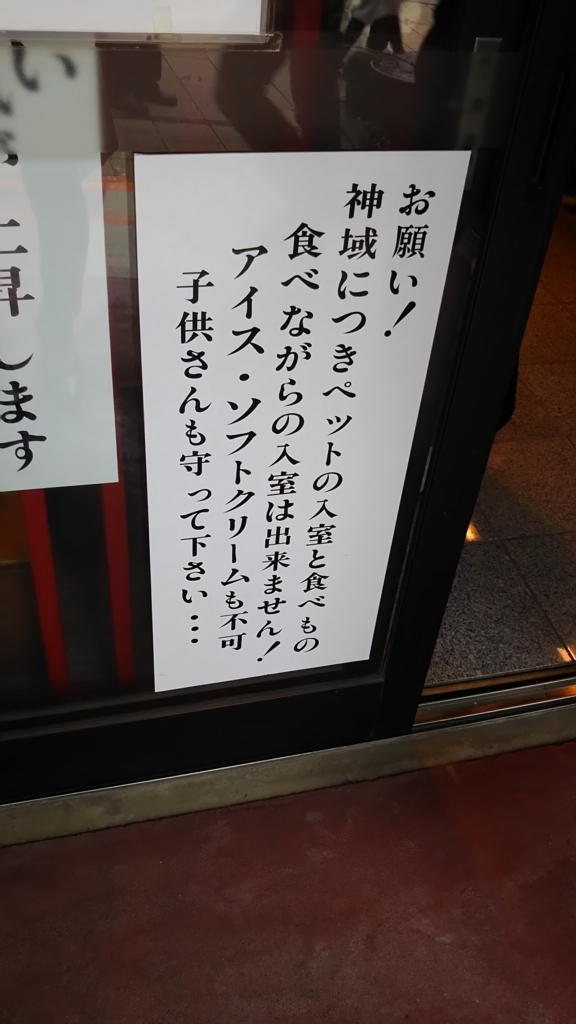 お願い！
神域につきペットの入室と食べもの
食べながらの入室は出来ません！
アイス・ソフトクリームも不可
子供さんも守って下さい…
い
します